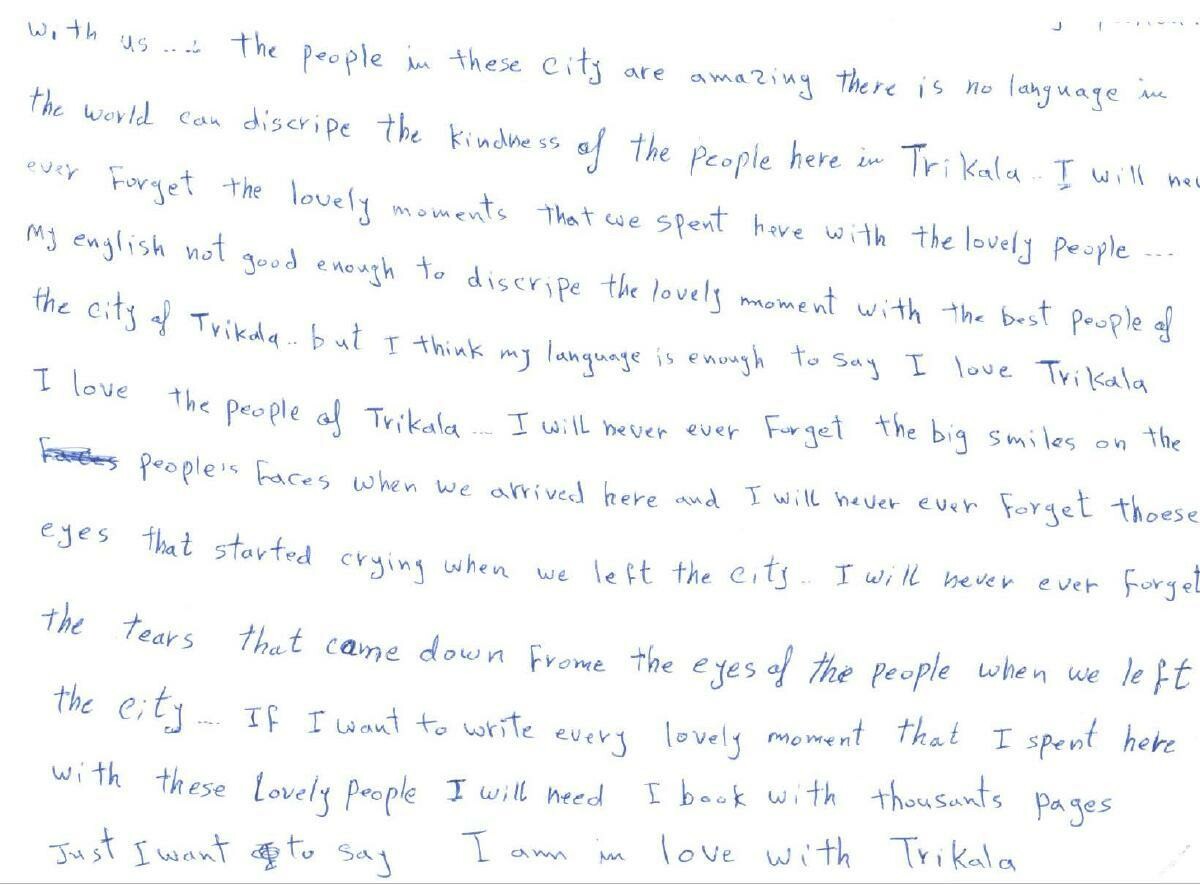 with us .... the people in these city are amazing there is no language in
the world can discripe the kindness of the people here in Trikala .. I will nev
ever Forget the lovely moments that we spent here with the lovely people ...
My english not good enough to discripe the lovely moment with the best people of
the city of Trikala .. but I think my language is enough to say I love Trikala
I love the people of Trikala ... I will never ever Forget the big smiles on the
Faces people's Faces when we arrived here and I will never ever Forget thoese
eyes that started crying when we left the city .. I will never ever Forget
the tears that came down Frome the eyes of the people when we left
the city .... If I want to write every lovely moment that I spent here
with these Lovely people I will need I book with thousants pages
Just I want to say I am in love with Trikala